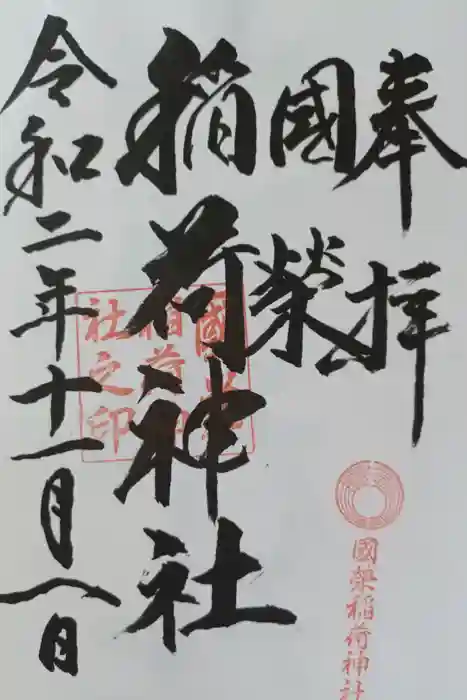 奉拝
國榮
稲荷神社
令和二年十一月八日
國榮稲荷神社
社之印
國榮稲荷神社